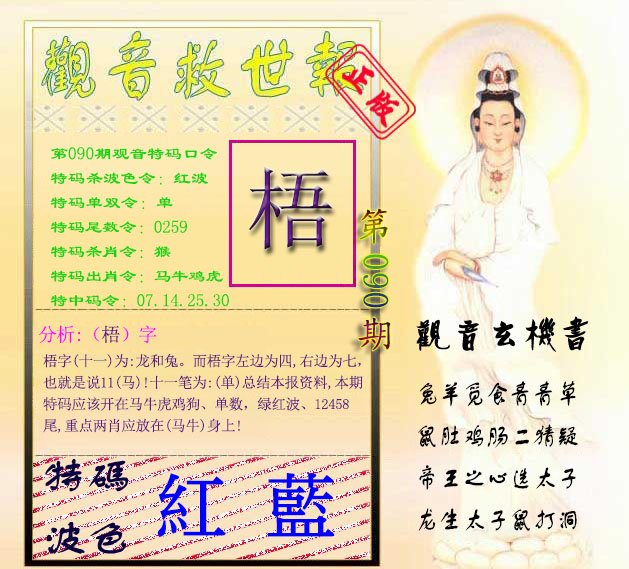 觀音救世報
正版
第090期观音特码口令
特码杀波色令：红波
特码单双令：单
特码尾数令：0259
特码杀肖令：猴
特码出肖令：马牛鸡虎
特中码令：07.14.25.30
梧
第090期
分析:（梧）字
梧字(十一)为:龙和兔。而梧字左边为四,右边为七,
也就是说11(马)!十一笔为:(单)总结本报资料,本期
特码应该开在马牛虎鸡狗、单数，绿红波、12458
尾,重点两肖应放在(马牛)身上!
特碼
波色
紅 藍
觀音玄機書
兔羊觅食青青草
鼠肚鸡肠二猜疑
帝王之心选太子
龙生太子鼠打洞